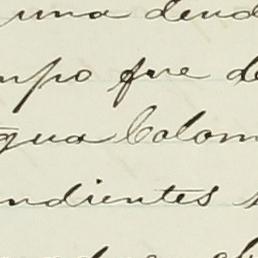 una deud
mpo fue de
gua Colom
ndientes